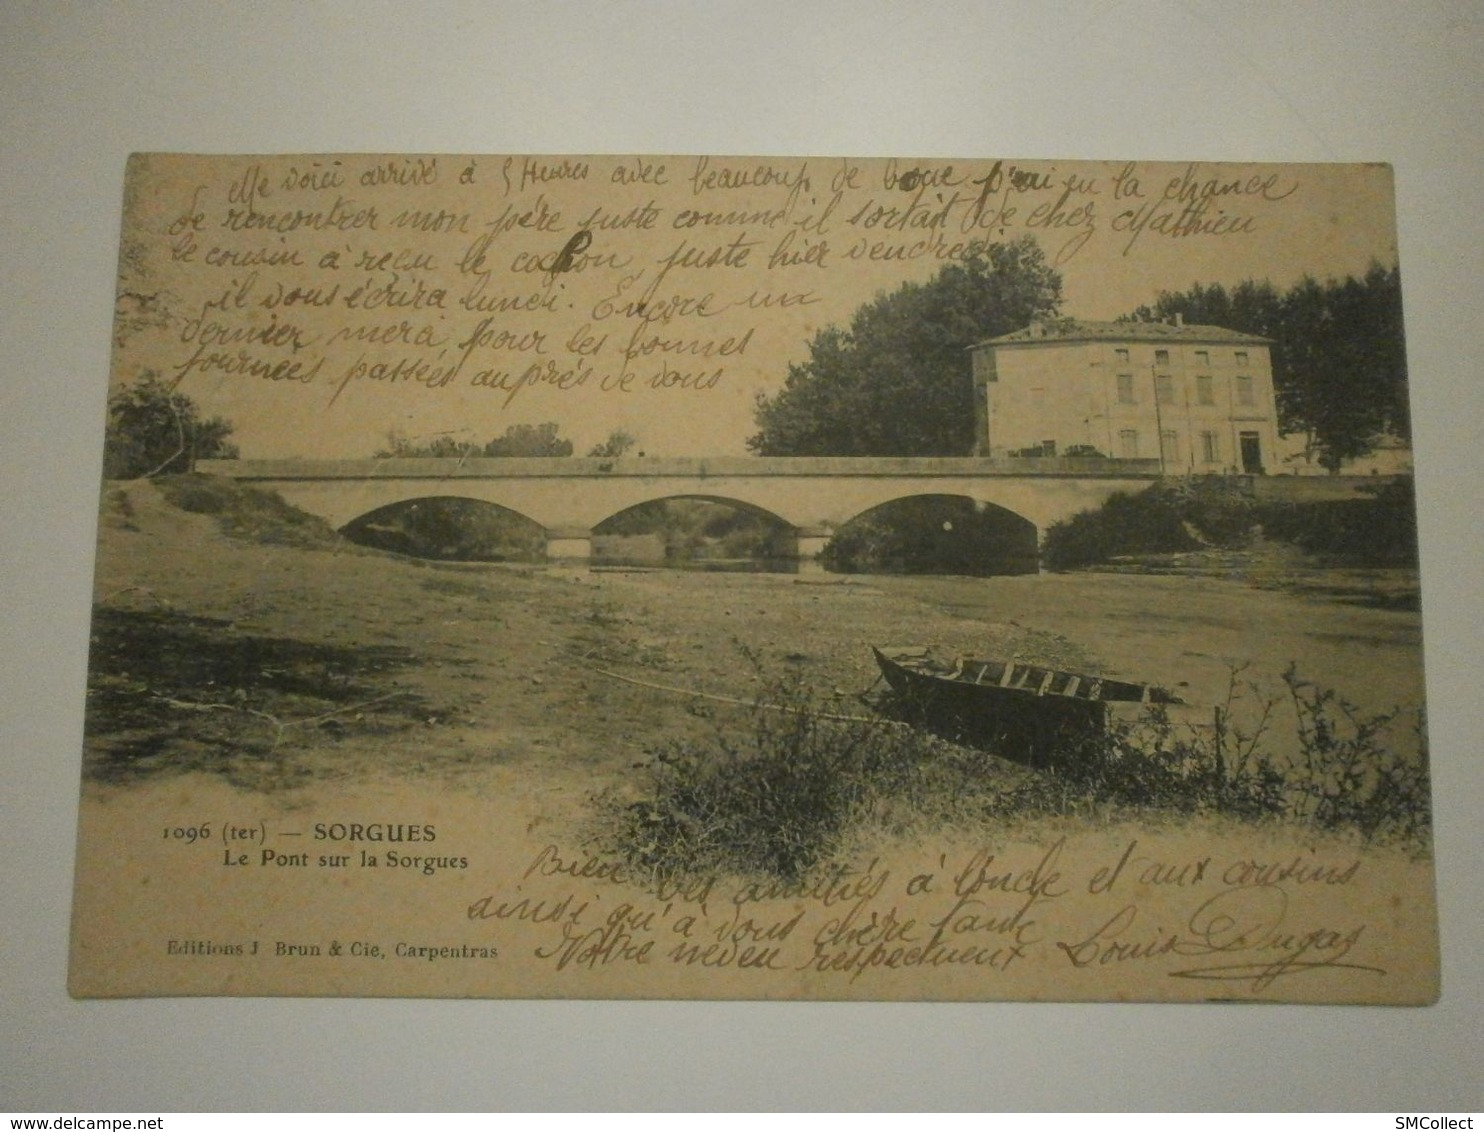 Me voici arrivé à 5 Heures avec beaucoup de boue j'ai eu la chance
de rencontrer mon père juste comme il sortait de chez Mathieu
le cousin à reçu le cochon juste hier vendredi
il vous écrira lundi. Encore un
dernier merci pour les bonnes
journées passées auprès de vous
1096 (ter) — SORGUES
Le Pont sur la Sorgues
Bien des amitiés à l'oncle et aux cousins
ainsi qu'à vous chère tante
Votre neveu respectueux Louis Dugas
Editions J Brun & Cie, Carpentras
SMCollect